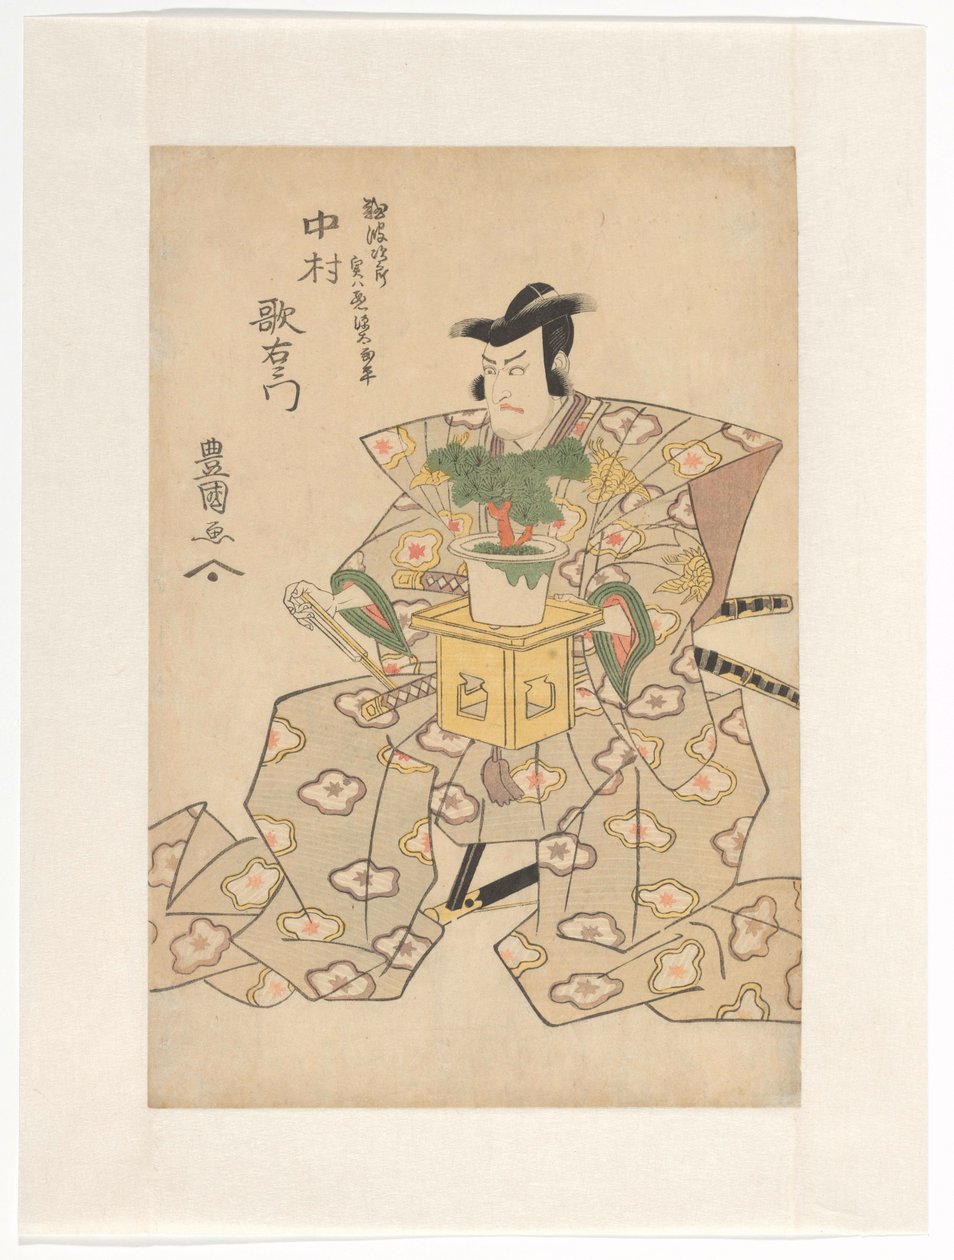 難波次郎
実ハ悪源太義平
中村
歌右衛門
豊國画